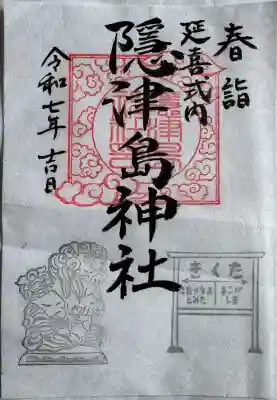 春詣
延喜式内
隠津島神社
令和七年 吉日
きくた